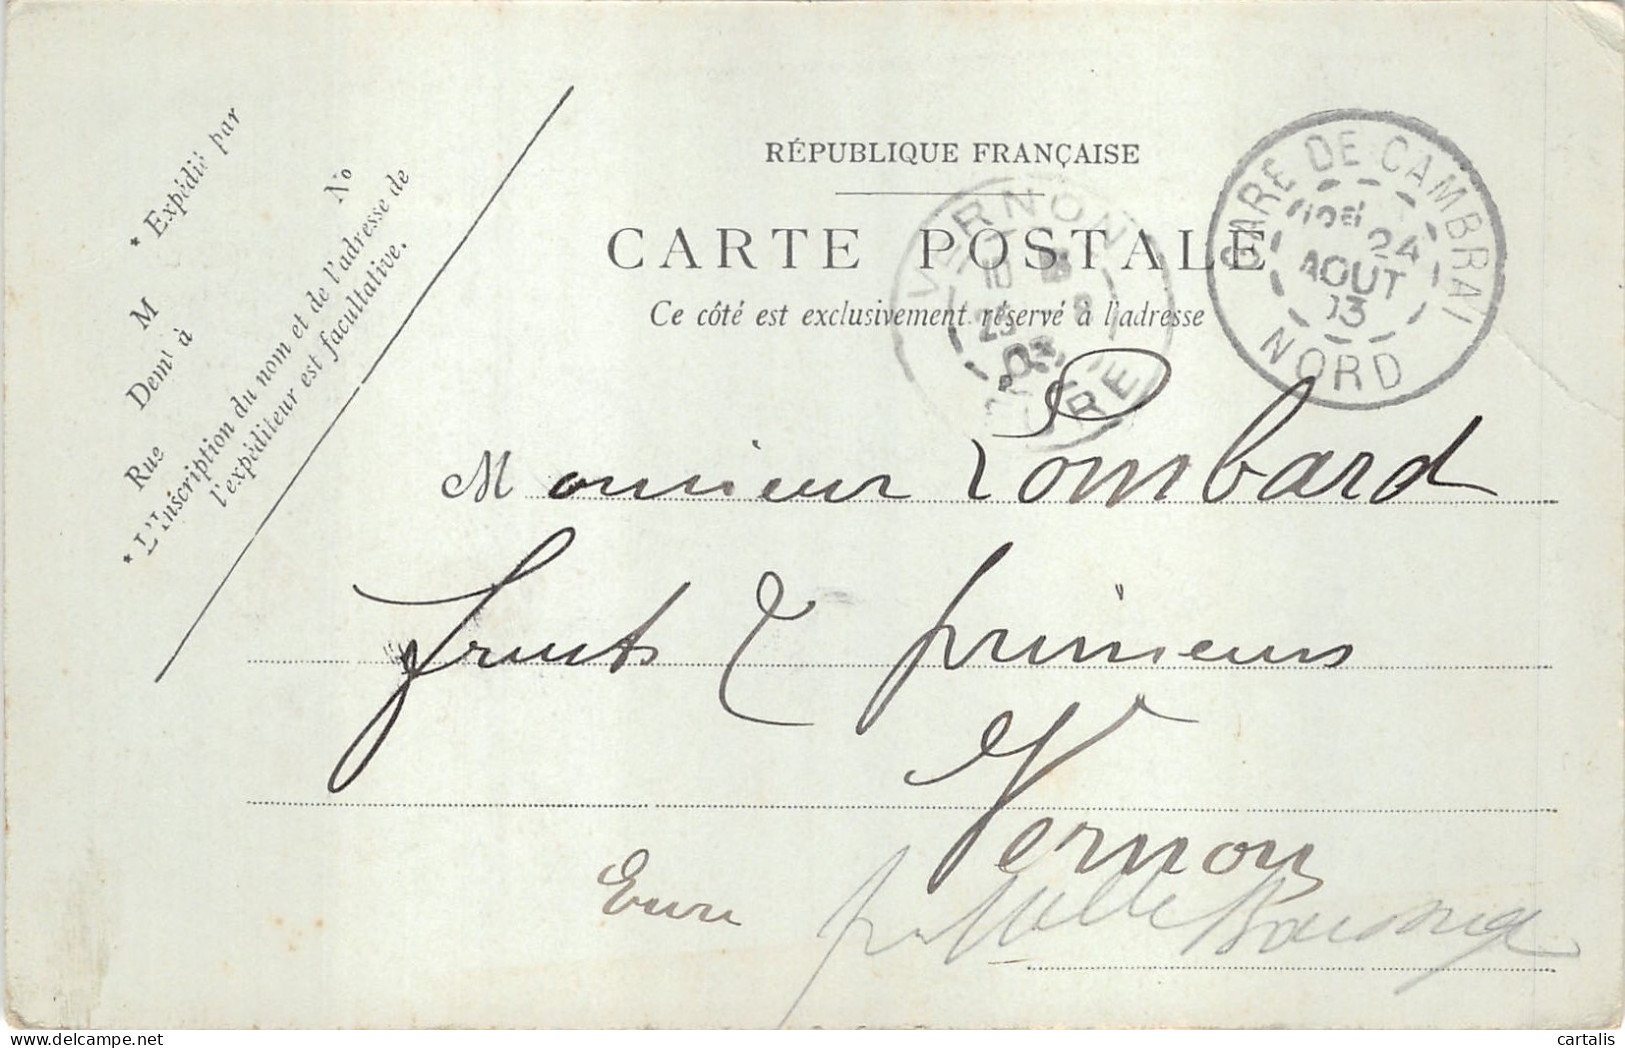 * Expédié par
M
Demt à
Rue
No
* L'Inscription du nom et de l'adresse de
l'expéditeur est facultative.
RÉPUBLIQUE FRANÇAISE
CARTE POSTALE
Ce côté est exclusivement réservé à l'adresse
VERNON
10
25 8
03
EURE
GARE DE CAMBRAI
24
AOUT
03
NORD
Monsieur Lombard
fruits & primeurs
Vernon
Eure
cartalis